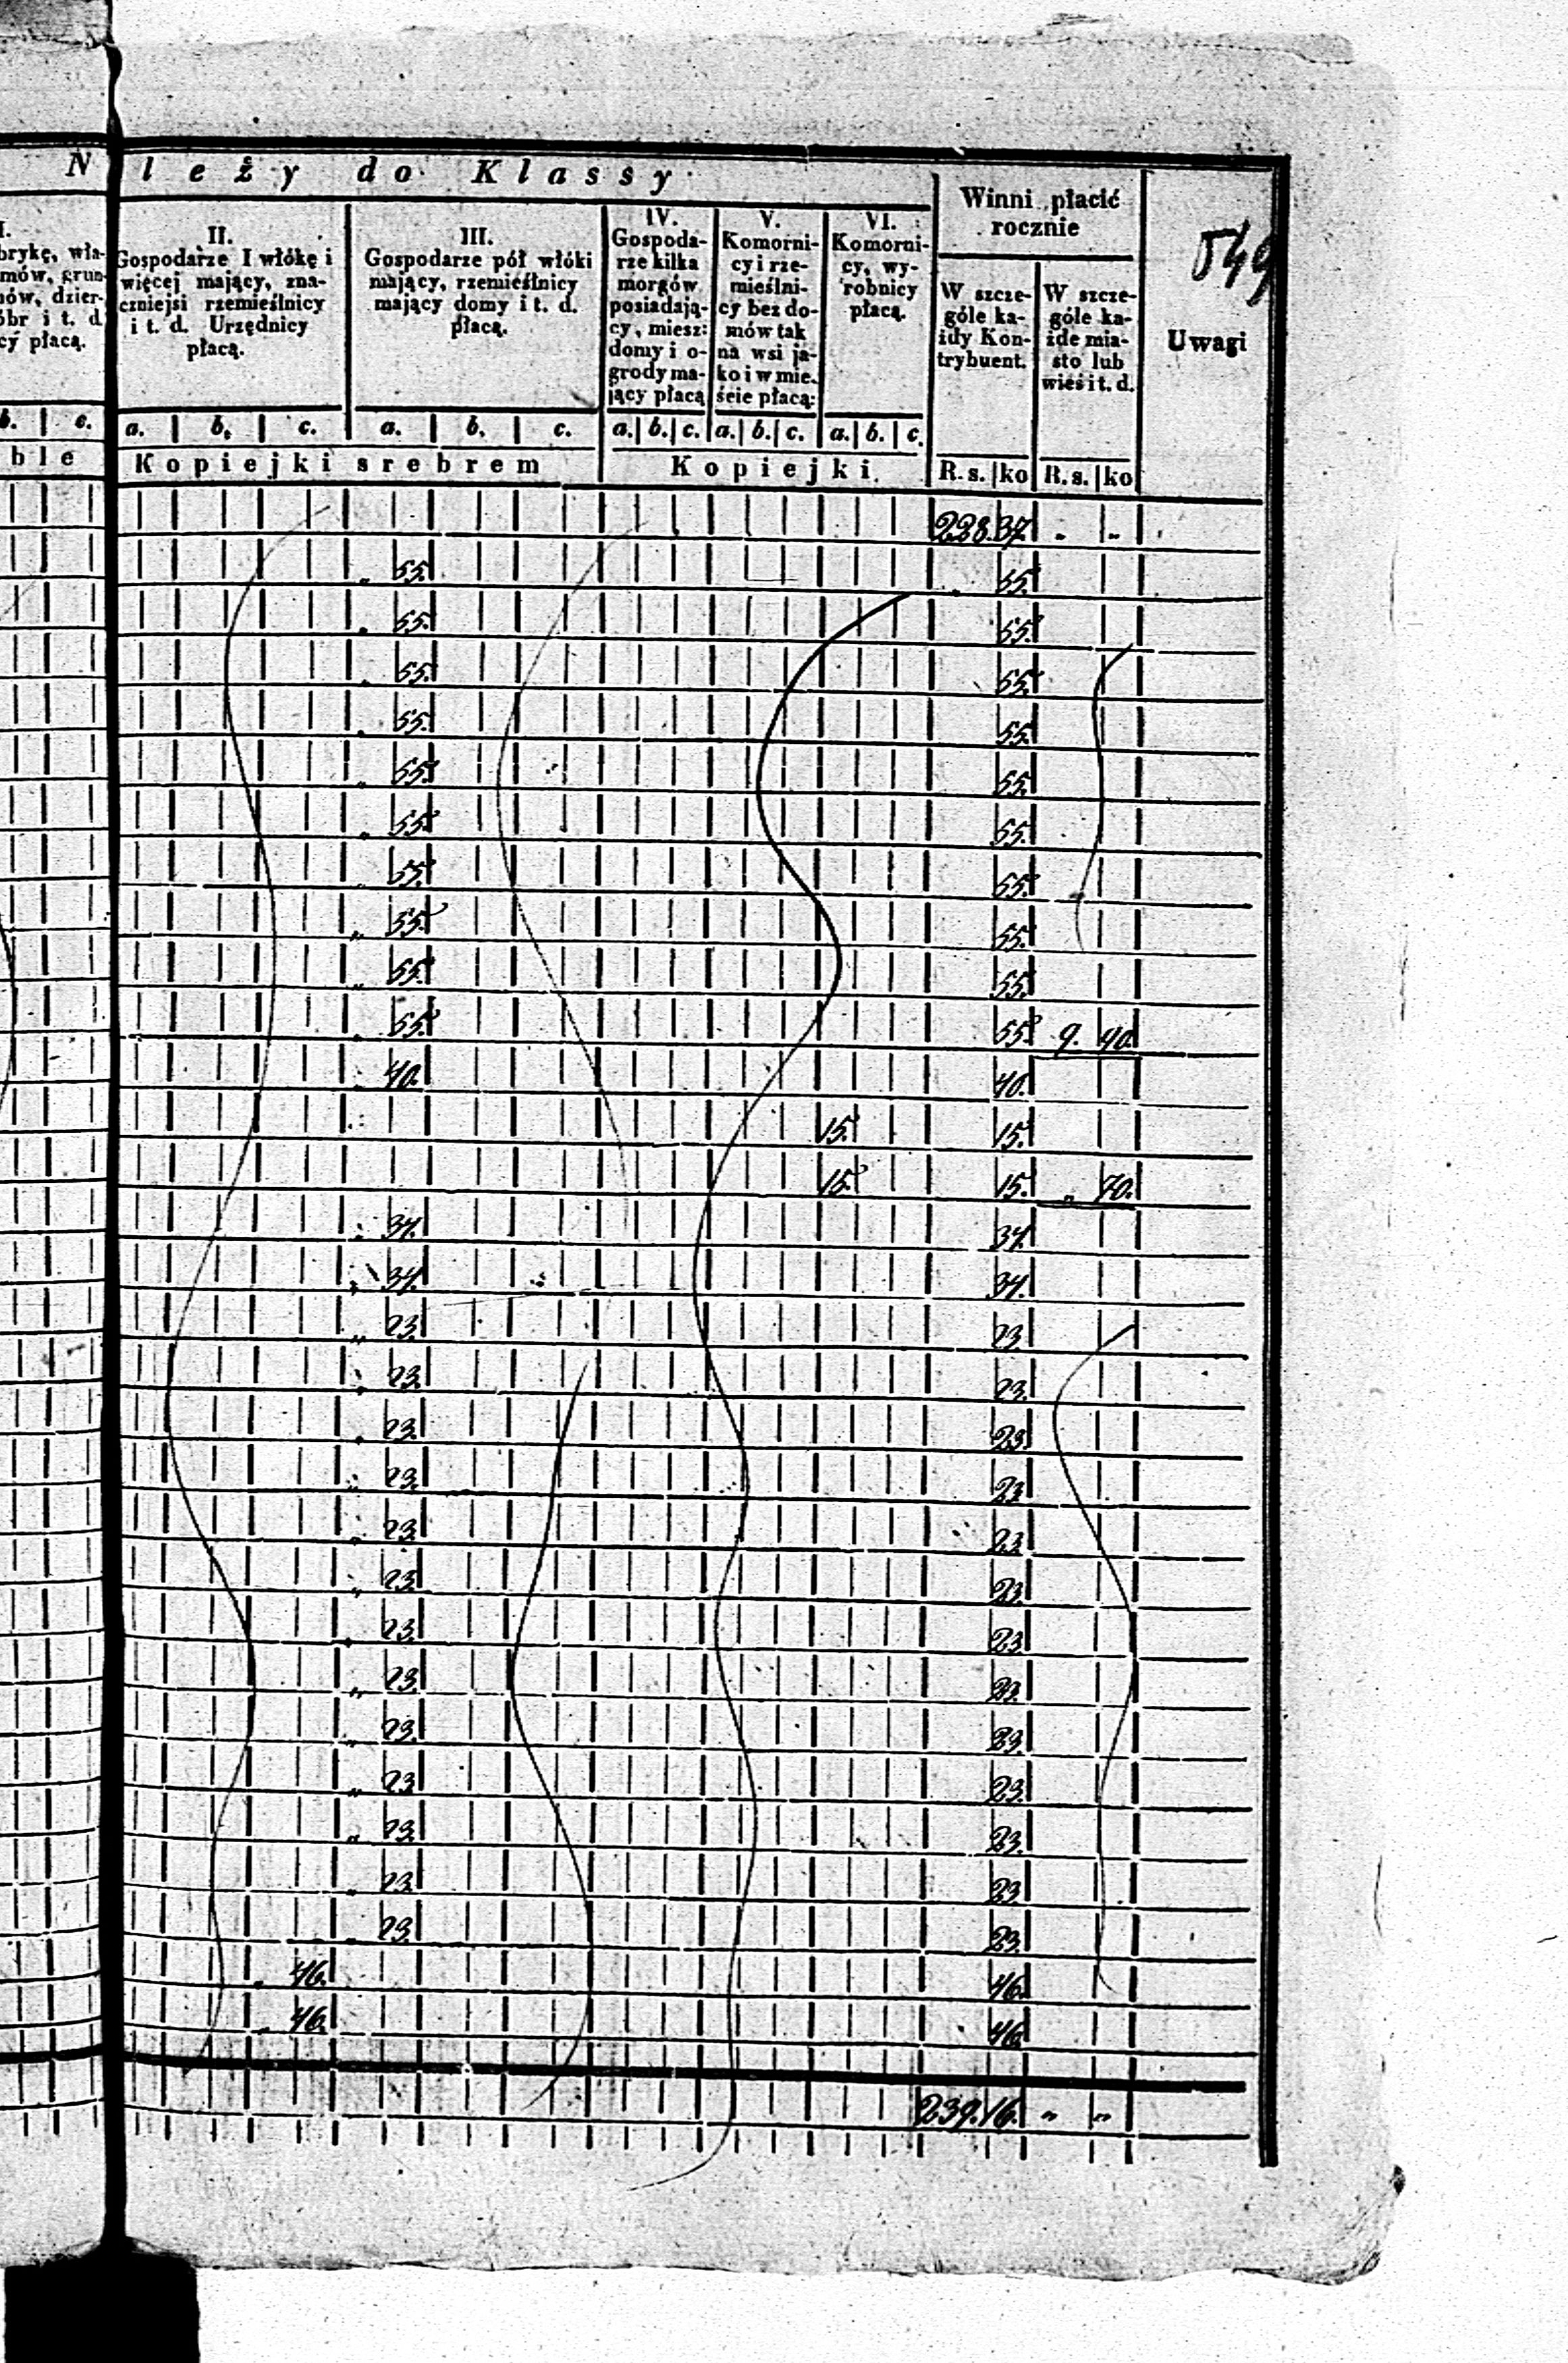 N leży do Klassy
Winni płacić
rocznie
549
I.
brykę, wła-
mów, grun-
nów, dzier-
óbr i t. d
cy płacą.
II.
Gospodarze I włókę i
więcej mający, zna-
czniejsi rzemieślnicy
i t. d. Urzędnicy
płacą.
III.
Gospodarze pół włóki
mający, rzemieślnicy
mający domy i t. d.
płacą.
IV.
Gospoda-
rze kilka
morgów
posiadają-
cy, miesz:
domy i o-
grody ma-
jący płacą
V.
Komorni-
cy i rze-
mieślni-
cy bez do-
mów tak
na wsi ja-
ko i w mie-
ście płacą:
VI.
Komorni-
cy, wy-
robnicy
płacą.
W szcze-
góle ka-
żdy Kon-
trybuent.
W szcze-
góle ka-
żde mia-
sto lub
wieś i t. d.
Uwagi
b. c. a. b. c. a. b. c. a. b. c. a. b. c. a. b. c.
ble Kopiejki srebrem Kopiejki. R. s. ko R. s. ko
228 37. " "
" 55. " 55.
" 55. 55.
" 55. 55.
" 55. 55.
" 55. 55.
" 55. 55.
" 55. 55.
" 55. 55.
" 55. 55.
" 55. 55. 9. 40.
" 40. 40.
15. 15.
15. 15. " 70.
" 34. 34.
" 34. 34.
" 23. 23.
" 23. 23.
" 23. 23.
" 23. 23
" 23. 23
" 23. 23
" 23. 23.
" 23. 23.
" 23. 23.
" 23. 23.
" 23. 23.
" 23. 23
" 23. 23.
" 46. 46.
" 46. 46.
239. 16. " "